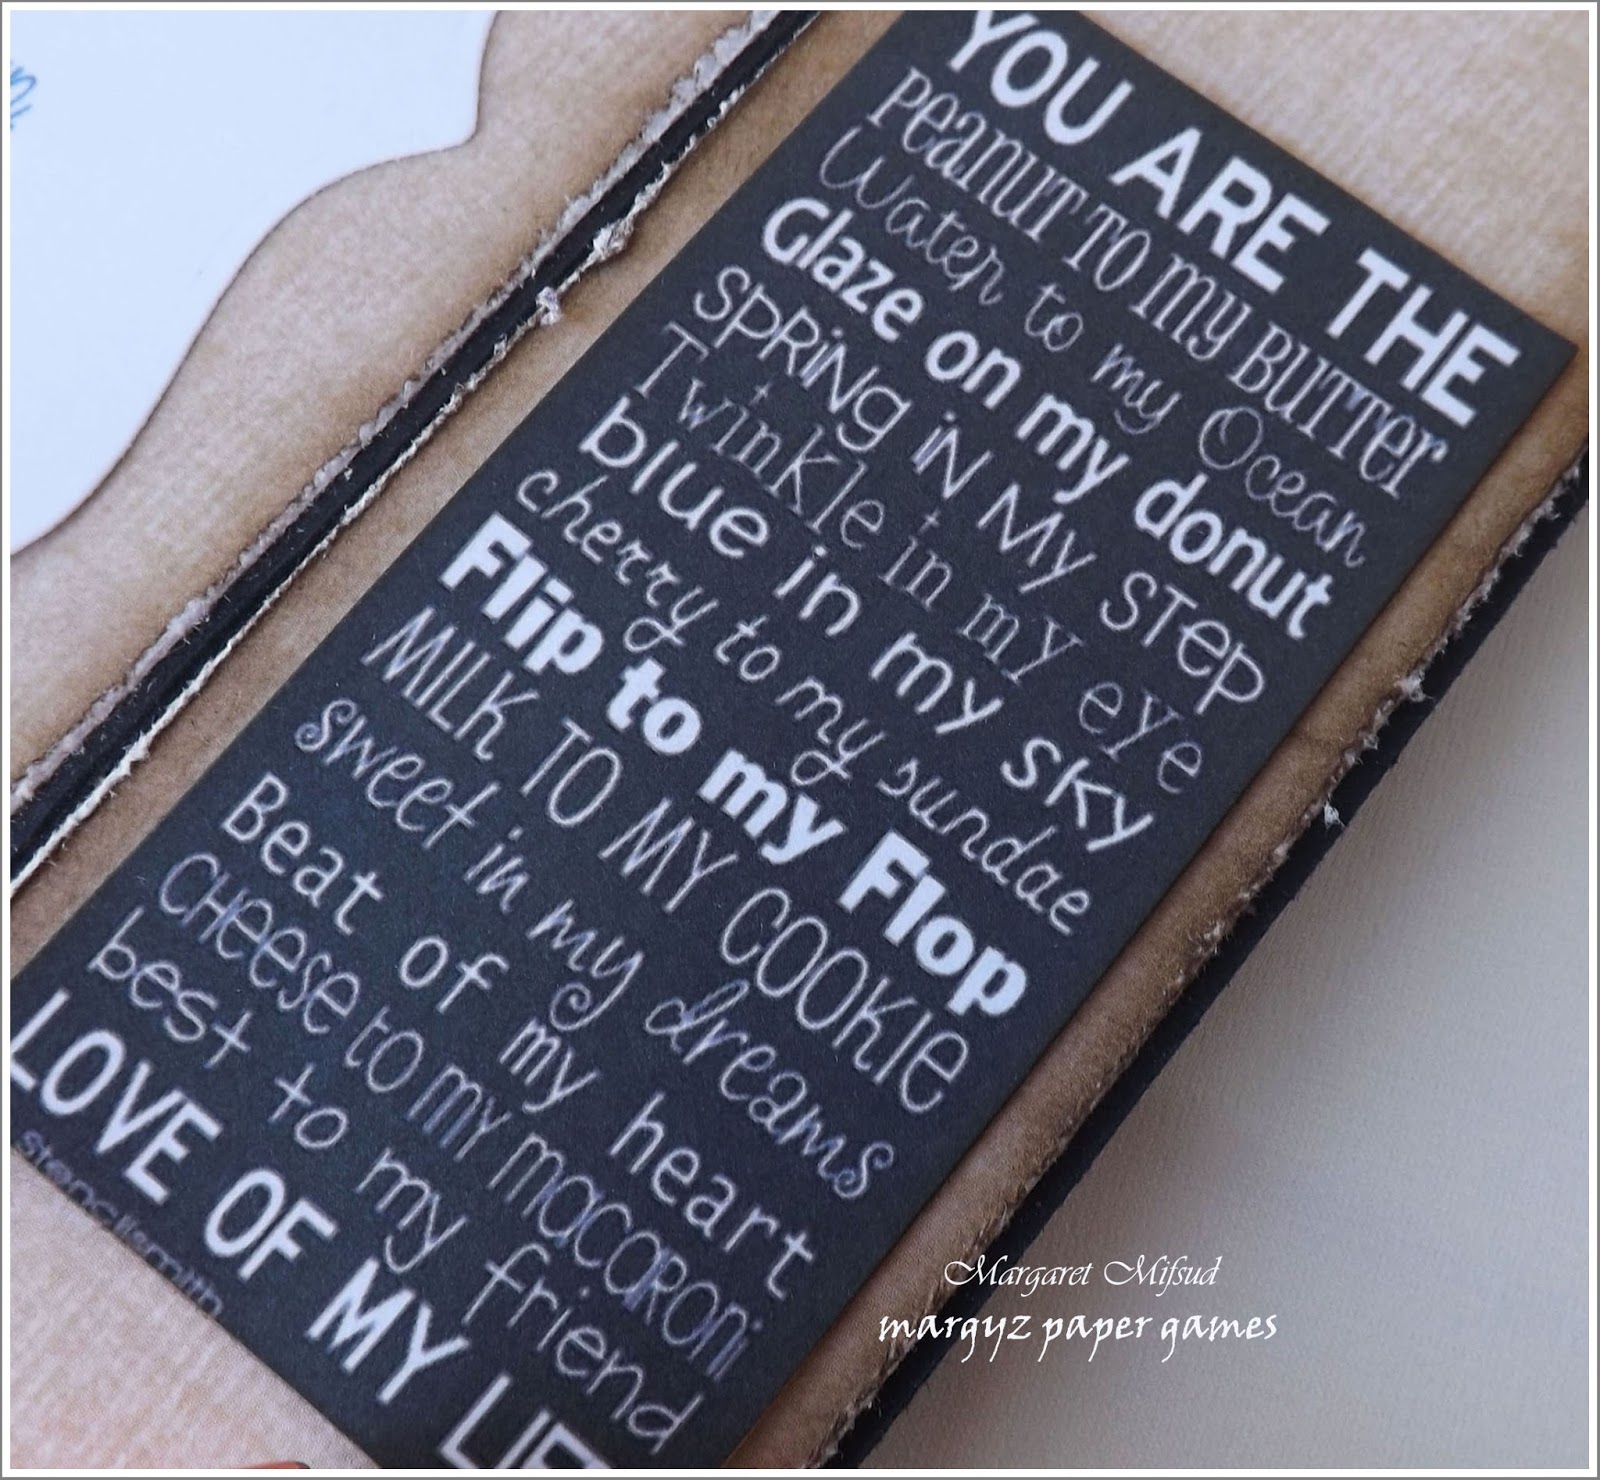 YOU ARE THE
PEANUT TO MY BUTTER
Water to my Ocean
Glaze on my donut
SPRING IN MY STEP
Twinkle in my eye
blue in my sky
cherry to my sundae
Flip to my Flop
MILK TO MY COOKIE
sweet in my dreams
Beat of my heart
CHEESE TO MY MACARONI
best to my friend
LOVE OF MY LIF
stencilsmith
Margaret Mifsud
margyz paper games